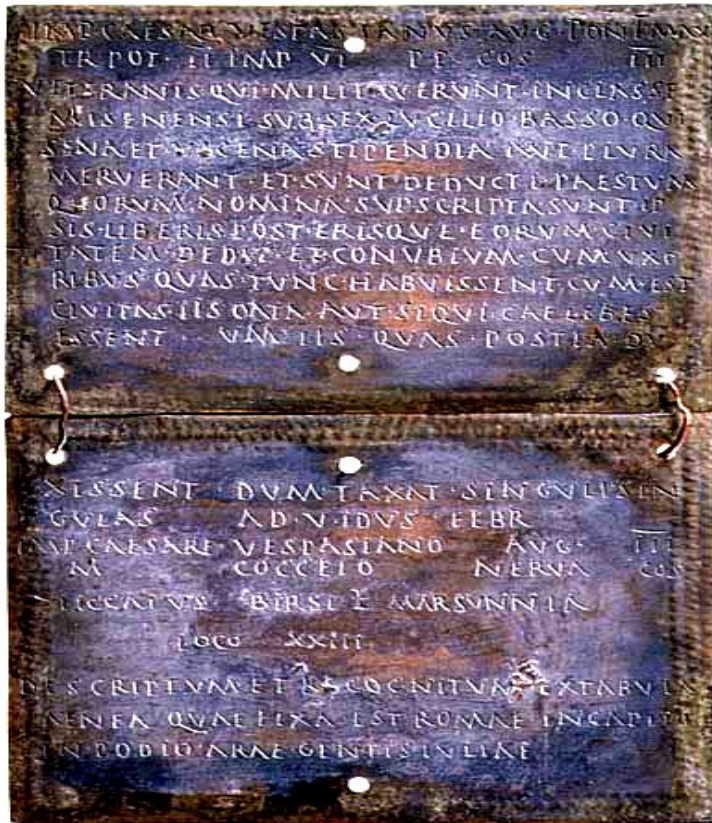 IMP CAESAR VESPASIANVS AVG PONT MAX
TR POT · II IMP VI P P COS III
VETERANIS QVI MILITAVERVNT · IN CLASSE
MISENENSI · SVB · SEX · LVCILIO BASSO · QVI
SENA ET VICENA STIPENDIA AVT PLVRA
MERVERANT · ET · SVNT DEDVCTI · PAESTVM
QVORVM · NOMINA SVPSCRIPTA SVNT IP
SIS · LIBERIS POSTERISQVE · EORVM · CIVI
TATEM DEDIT · ET · CONVBIVM · CVM VXO
RIBVS QVAS TVNC HABVISSENT · CVM · EST
CIVITAS · IIS DATA AVT · SI QVI · CAELIBES
ESSENT · IIS · QVAS · POSTEA DV
XISSENT · DVM · TAXAT · SINGVLI · SIN
GVLAS AD · V · IDVS FEBR
IMP · CAESARE · VESPASIANO AVG · III
M COCCEIO NERVA COS
BIRSI F MARSVNNIA
LOCO XXIII
DESCRIPTVM · ET RECOGNITVM EX TABVLA
AENEA QVAE FIXA · EST ROMAE IN CAPITO
IN · PODIO ARAE · GENTIS IVLIAE